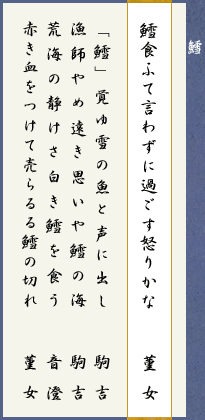 鱈
鱈食ふて言わずに過ごす怒りかな 菫女
「鱈」覚ゆ雪の魚と声に出し 駒吉
漁師やめ遠き思いや鱈の海 駒吉
荒海の静けさ白き鱈を食う 音澄
赤き血をつけて売らるる鱈の切れ 菫女